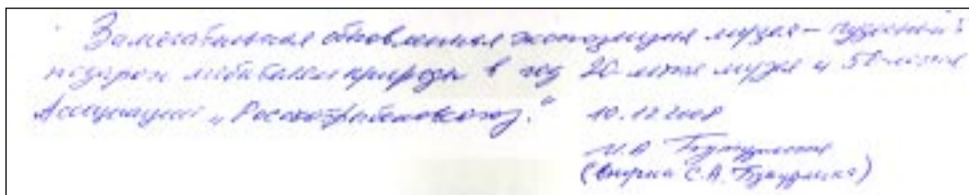 Замечательная обновленная экспозиция музея – чудесный
подарок любителям природы в год 20-летия музея и 50-летия
Ассоциации „Росохотрыболовсоюз.“ 10.12.2008
И.А.
(внучка С.А. )